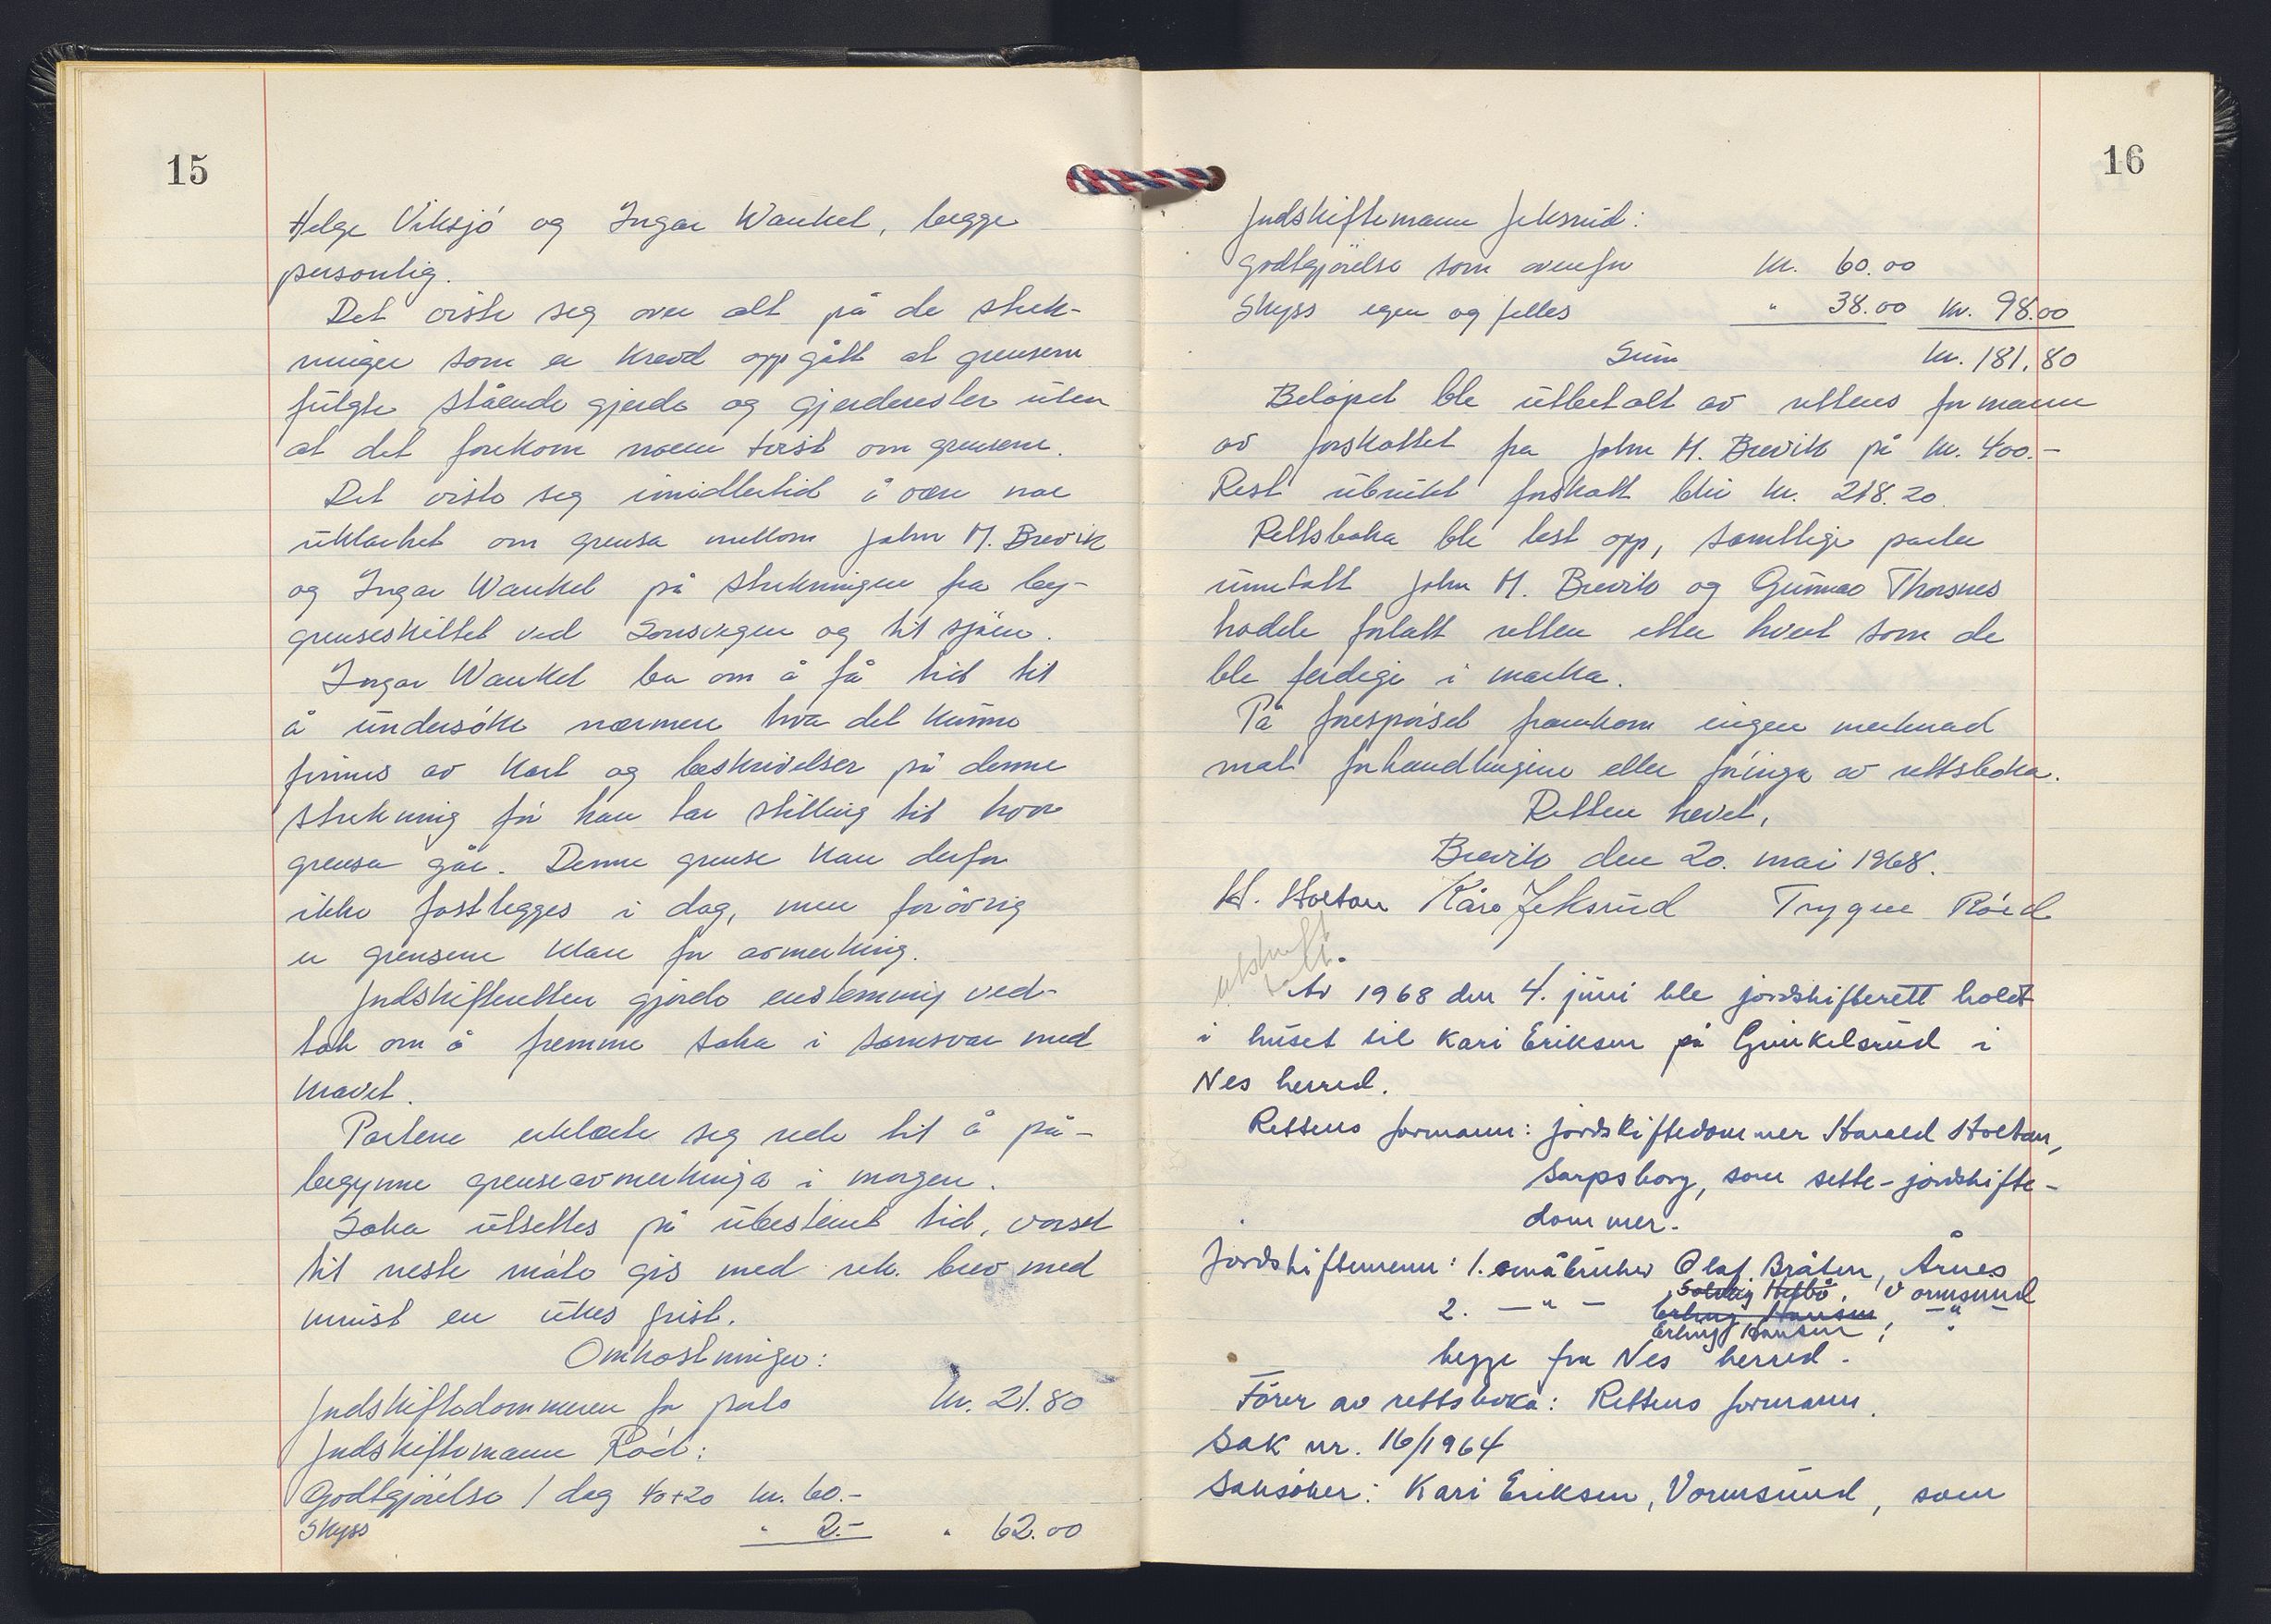 15
Helge Viksjø og Ingar Wankel, begge
personlig.
Det viste seg over alt på de strek-
ninger som er krevd oppgått at grensene
fulgte stående gjerde og gjerderester uten
at det forekom noen tvist om grensene.
Det viste seg imidlertid å være noe
uklarhet om grensa mellom John M. Brevik
og Ingar Wankel på strekningen fra by-
grenseskillet ved Sonsvegen og til sjøen.
Ingar Wankel ba om å få tid til
å undersøke nærmere hva det kunne
finnes av kart og beskrivelser på denne
strekning før han tar stilling til hvor
grensa går. Denne grense kan derfor
ikke fastlegges i dag, men forøvrig
er grensene klare for avmerking.
Jordskifteretten gjorde enstemmig ved-
tak om å fremme saka i samsvar med
kravet.
Partene erklærte seg rede til å på-
begynne grenseavmerkinga i morgen.
Saka utsettes på ubestemt tid, varsel
til neste møte gis med rek. brev med
minst en ukes frist.
Omkostninger:
Jordskiftedommeren for porto kr. 21.80
Jordskiftemann Röed:
Godtgjørelse 1 dag 40+20 kr. 60.-
Skyss " 2.- " 62.00
16
Jordskiftemann Jeksrud:
Godtgjørelse som ovenfor kr. 60.00
Skyss egen og felles " 38.00 kr. 98.00
Sum kr. 181,80
Beløpet ble utbetalt av rettens formann
av forskottet fra John M. Brevik på kr. 400.-
Rest ubrukt forskott blir kr. 218.20
Rettsboka ble lest opp, samtlige parter
unntatt John M. Brevik og Gunnar Thorsnes
hadde forlatt retten etter hvert som de
ble ferdige i marka.
På forespørsel framkom ingen merknad
mot forhandlingene eller føringa av rettsboka.
Retten hevet,
Brevik den 20. mai 1968.
H. Holtan Kåre Jeksrud Trygve Röed
utskrift
År 1968 den 4. juni ble jordskifterett holdt
i huset til Kari Eriksen på Gunkelsrud i
Nes herred.
Rettens formann: jordskiftedommer Harald Holtan,
Sarpsborg, som sette-jordskifte-
dommer.
Jordskiftemenn: 1. småbruker Olaf Bråten, Årnes
Solveig Hefbø, Vormsund
2. - " - Erling Hansen - " -
Erling Hansen,
begge fra Nes herred.
Fører av rettsboka: Rettens formann.
Sak nr. 16/1964
Saksøker: Kari Eriksen, Vormsund, som